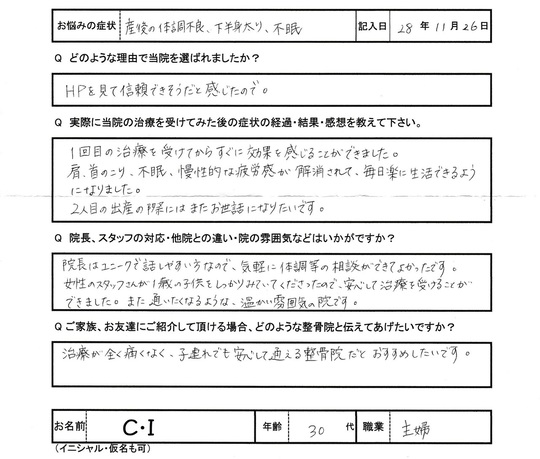 お悩みの症状 産後の体調不良、下半身太り、不眠 記入日 28年11月26日
Q どのような理由で当院を選ばれましたか？
HPを見て信頼できそうだと感じたので。
Q 実際に当院の治療を受けてみた後の症状の経過・結果・感想を教えて下さい。
1回目の治療を受けてからすぐに効果を感じることができました。
肩、首のこり、不眠、慢性的な疲労感が解消されて、毎日楽に生活できるよう
になりました。
2人目の出産の際にはまたお世話になりたいです。
Q 院長、スタッフの対応・他院との違い・院の雰囲気などはいかがですか？
院長はユニークで話しやすい方なので、気軽に体調等の相談ができてよかったです。
女性のスタッフさんが1歳の子供をしっかりみていてくださったので、安心して治療を受けることが
できました。また通いたくなるような、温かい雰囲気の院です。
Q ご家族、お友達にご紹介して頂ける場合、どのような整骨院と伝えてあげたいですか？
治療が全く痛くなく、子連れでも安心して通える整骨院だとおすすめしたいです。
お名前 C・I 年齢 30代 職業 主婦
（イニシャル・仮名も可）